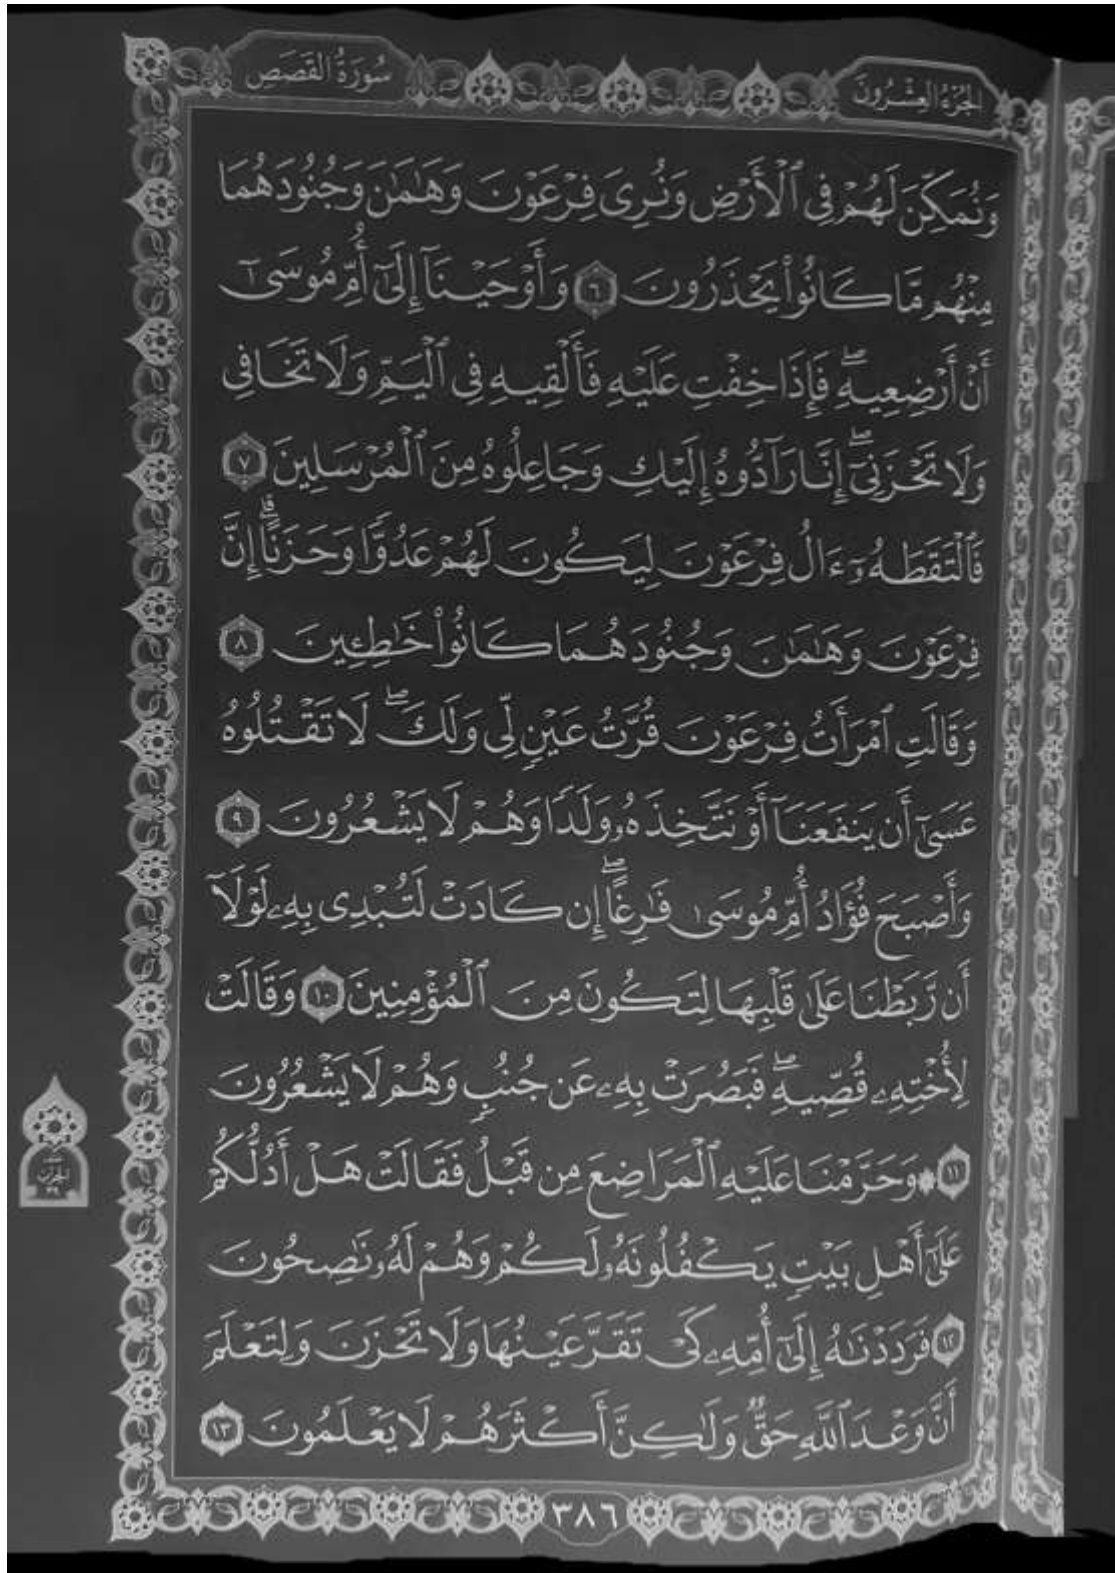 الجزء العشرون
سورة القصص
وَنُمَكِّنَ لَهُمْ فِي ٱلْأَرْضِ وَنُرِيَ فِرْعَوْنَ وَهَٰمَٰنَ وَجُنُودَهُمَا
مِنْهُم مَّا كَانُوا۟ يَحْذَرُونَ ٦ وَأَوْحَيْنَآ إِلَىٰٓ أُمِّ مُوسَىٰٓ
أَنْ أَرْضِعِيهِ ۖ فَإِذَا خِفْتِ عَلَيْهِ فَأَلْقِيهِ فِي ٱلْيَمِّ وَلَا تَخَافِي
وَلَا تَحْزَنِيٓ ۖ إِنَّا رَآدُّوهُ إِلَيْكِ وَجَاعِلُوهُ مِنَ ٱلْمُرْسَلِينَ ٧
فَٱلْتَقَطَهُۥٓ ءَالُ فِرْعَوْنَ لِيَكُونَ لَهُمْ عَدُوًّا وَحَزَنًا ۗ إِنَّ
فِرْعَوْنَ وَهَٰمَٰنَ وَجُنُودَهُمَا كَانُوا۟ خَٰطِـِٔينَ ٨
وَقَالَتِ ٱمْرَأَتُ فِرْعَوْنَ قُرَّتُ عَيْنٍ لِّي وَلَكَ ۖ لَا تَقْتُلُوهُ
عَسَىٰٓ أَن يَنفَعَنَآ أَوْ نَتَّخِذَهُۥ وَلَدًا وَهُمْ لَا يَشْعُرُونَ ٩
وَأَصْبَحَ فُؤَادُ أُمِّ مُوسَىٰ فَٰرِغًا ۖ إِن كَادَتْ لَتُبْدِي بِهِۦ لَوْلَآ
أَن رَّبَطْنَا عَلَىٰ قَلْبِهَا لِتَكُونَ مِنَ ٱلْمُؤْمِنِينَ ١٠ وَقَالَتْ
لِأُخْتِهِۦ قُصِّيهِ ۖ فَبَصُرَتْ بِهِۦ عَن جُنُبٍ وَهُمْ لَا يَشْعُرُونَ
١١ ۞ وَحَرَّمْنَا عَلَيْهِ ٱلْمَرَاضِعَ مِن قَبْلُ فَقَالَتْ هَلْ أَدُلُّكُمْ
عَلَىٰٓ أَهْلِ بَيْتٍ يَكْفُلُونَهُۥ لَكُمْ وَهُمْ لَهُۥ نَٰصِحُونَ
١٢ فَرَدَدْنَٰهُ إِلَىٰٓ أُمِّهِۦ كَيْ تَقَرَّ عَيْنُهَا وَلَا تَحْزَنَ وَلِتَعْلَمَ
أَنَّ وَعْدَ ٱللَّهِ حَقٌّ وَلَٰكِنَّ أَكْثَرَهُمْ لَا يَعْلَمُونَ ١٣
٣٨٦